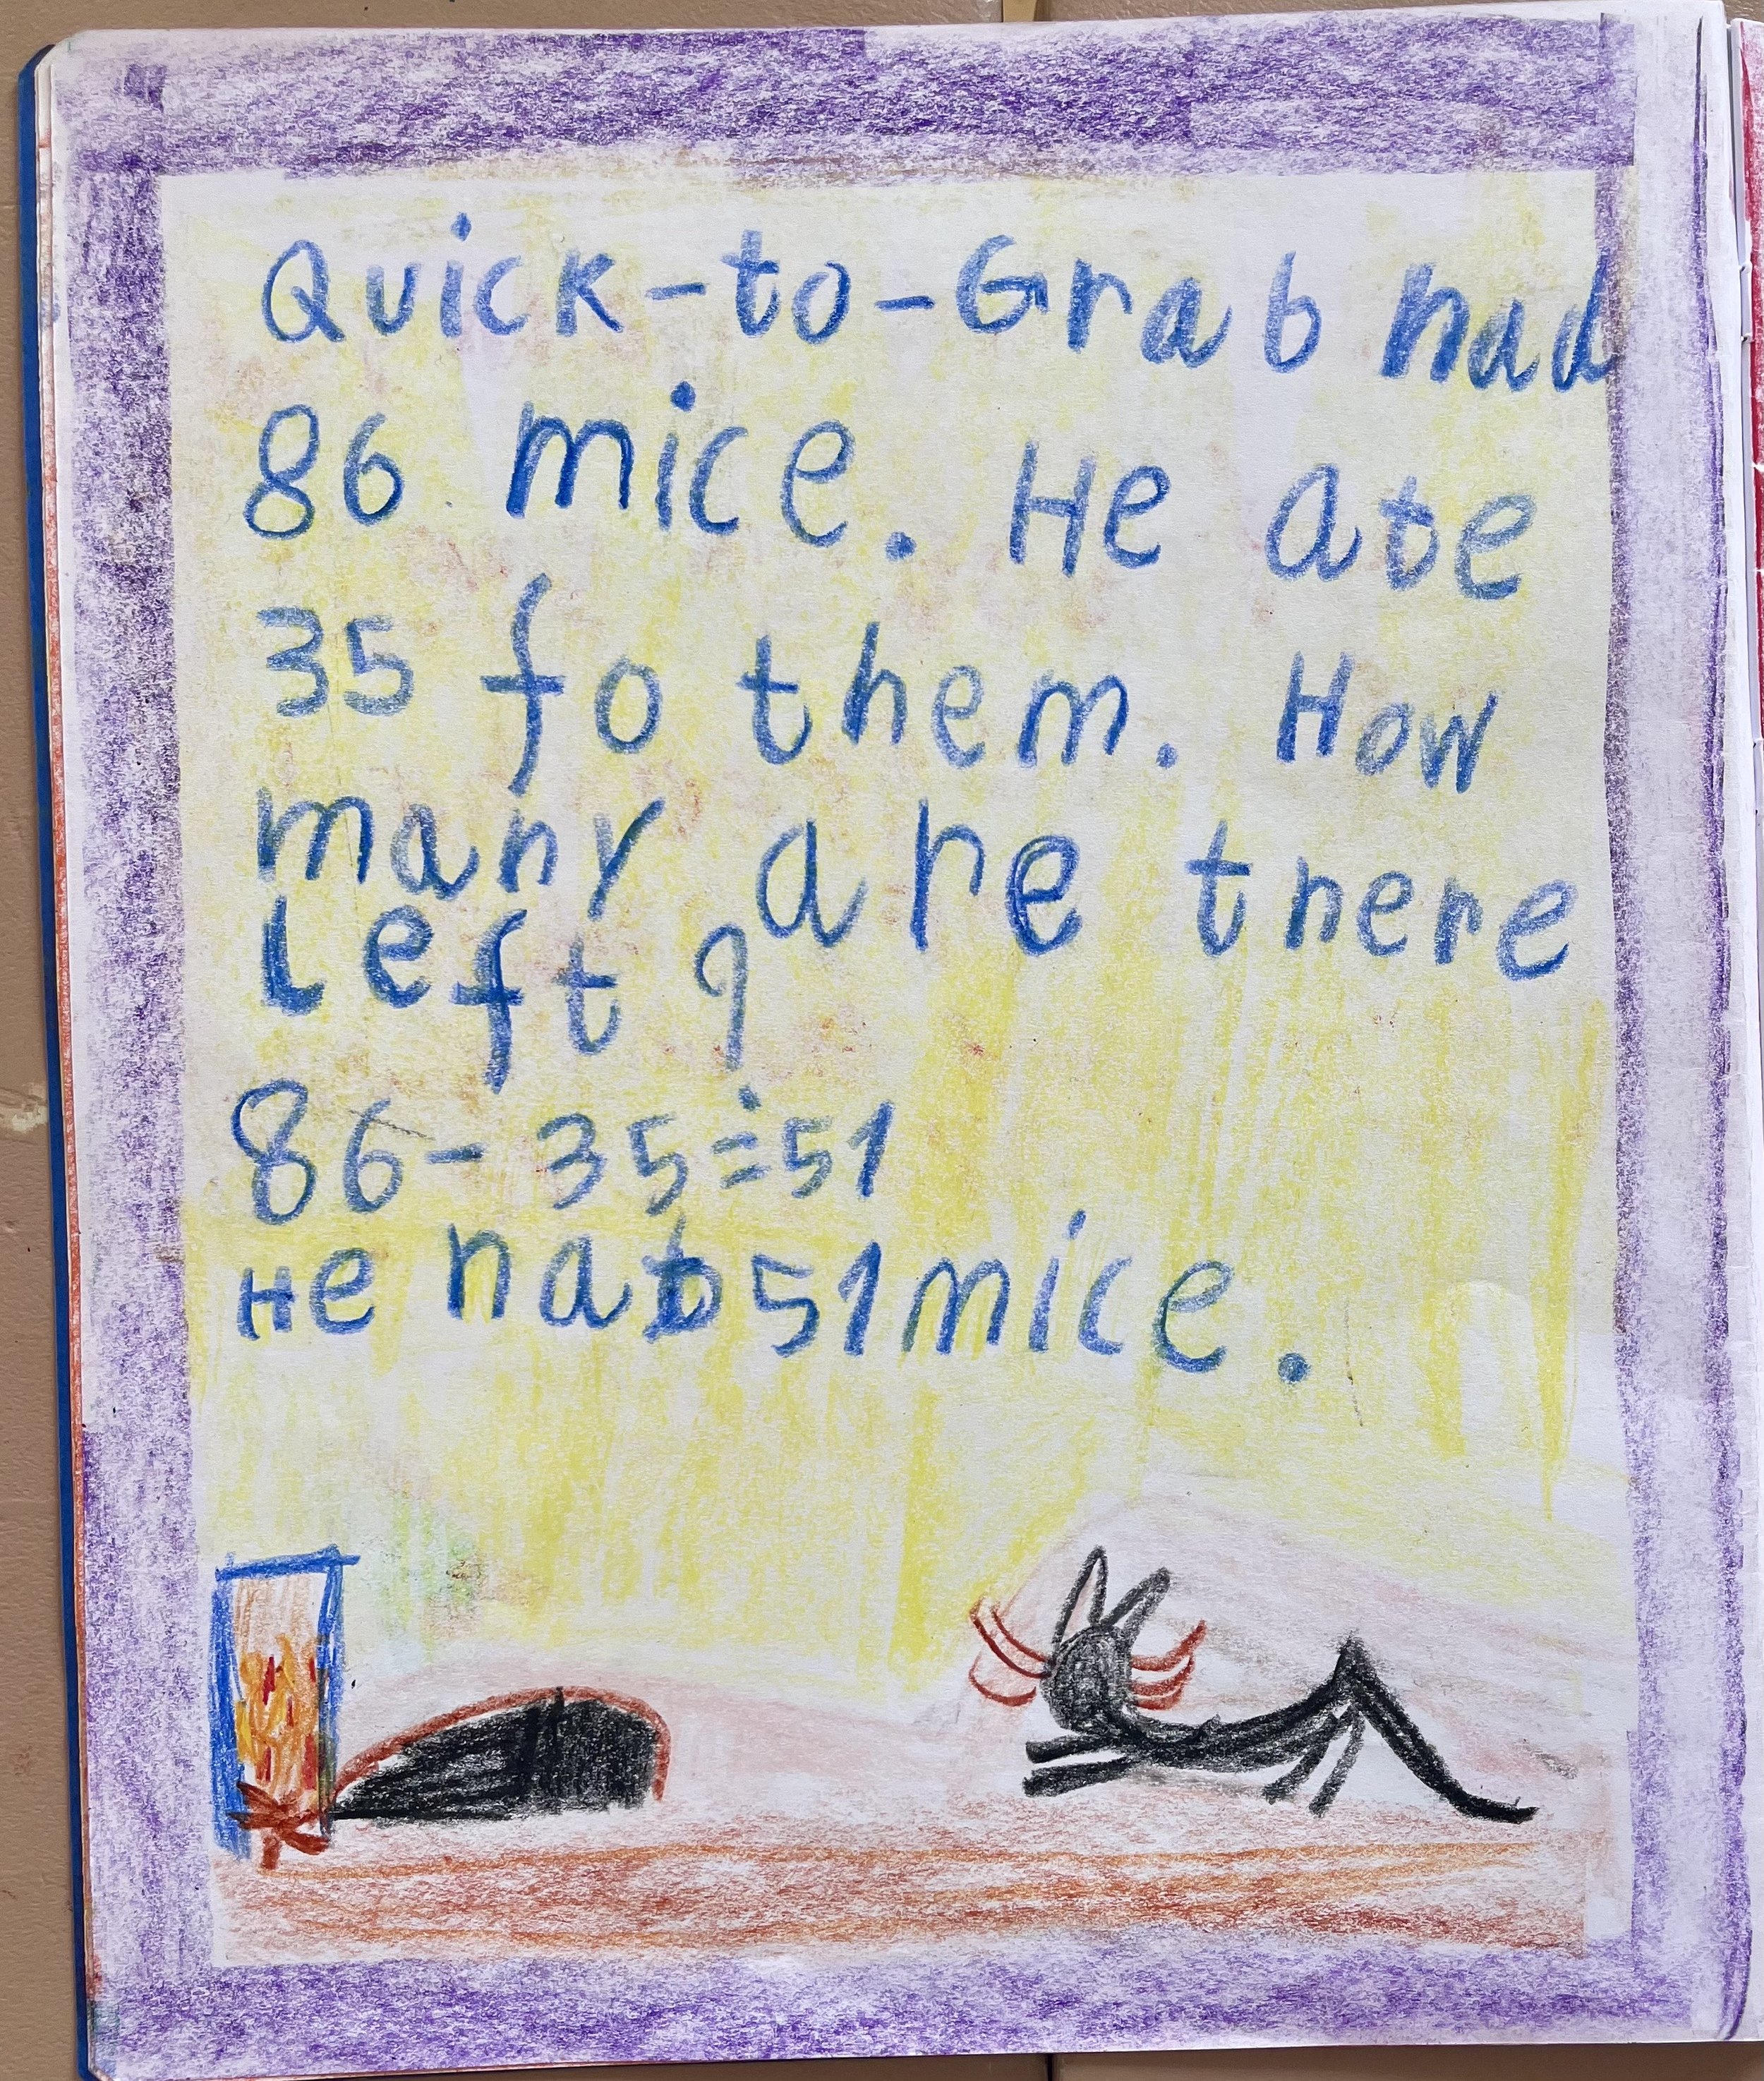 Quick-to-Grab had
86 mice. He ate
35 fo them. How
many are there
left?
86-35=51
He had 51 mice.